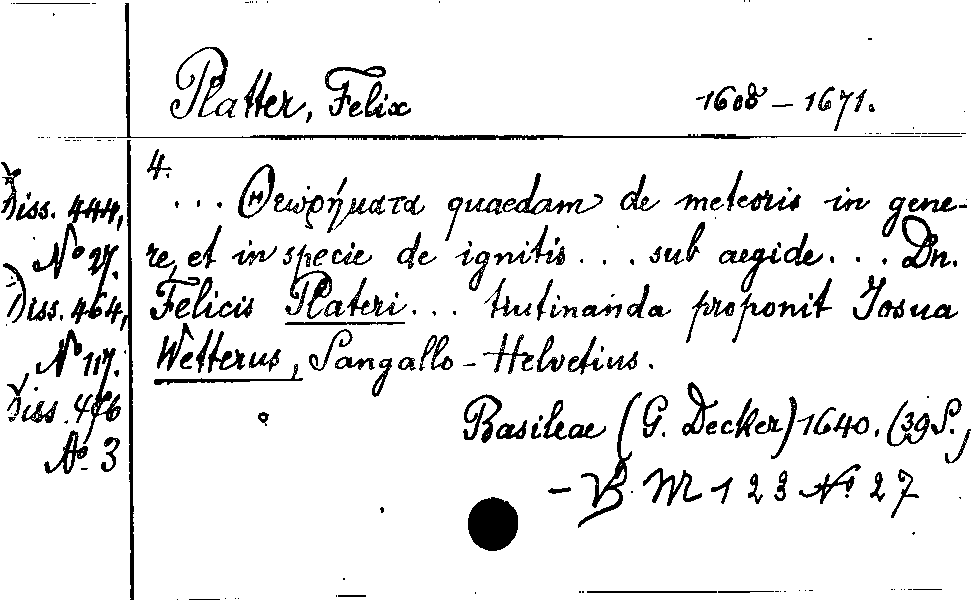 Platter, Felix 1608 – 1671.
4.
... Θεωρήματα quaedam de meteoris in gene-
re, et in specie de ignitis ... sub aegide ... Dn.
Felicis Plateri ... trutinanda proponit Iosua
Wetterus, Sangallo-Helvetius.
Basileae (G. Decker) 1640. (39 S.)
– B. M 123 No 27
Diss. 444,
No 27.
Diss. 464,
No 117.
Diss. 476
No. 3